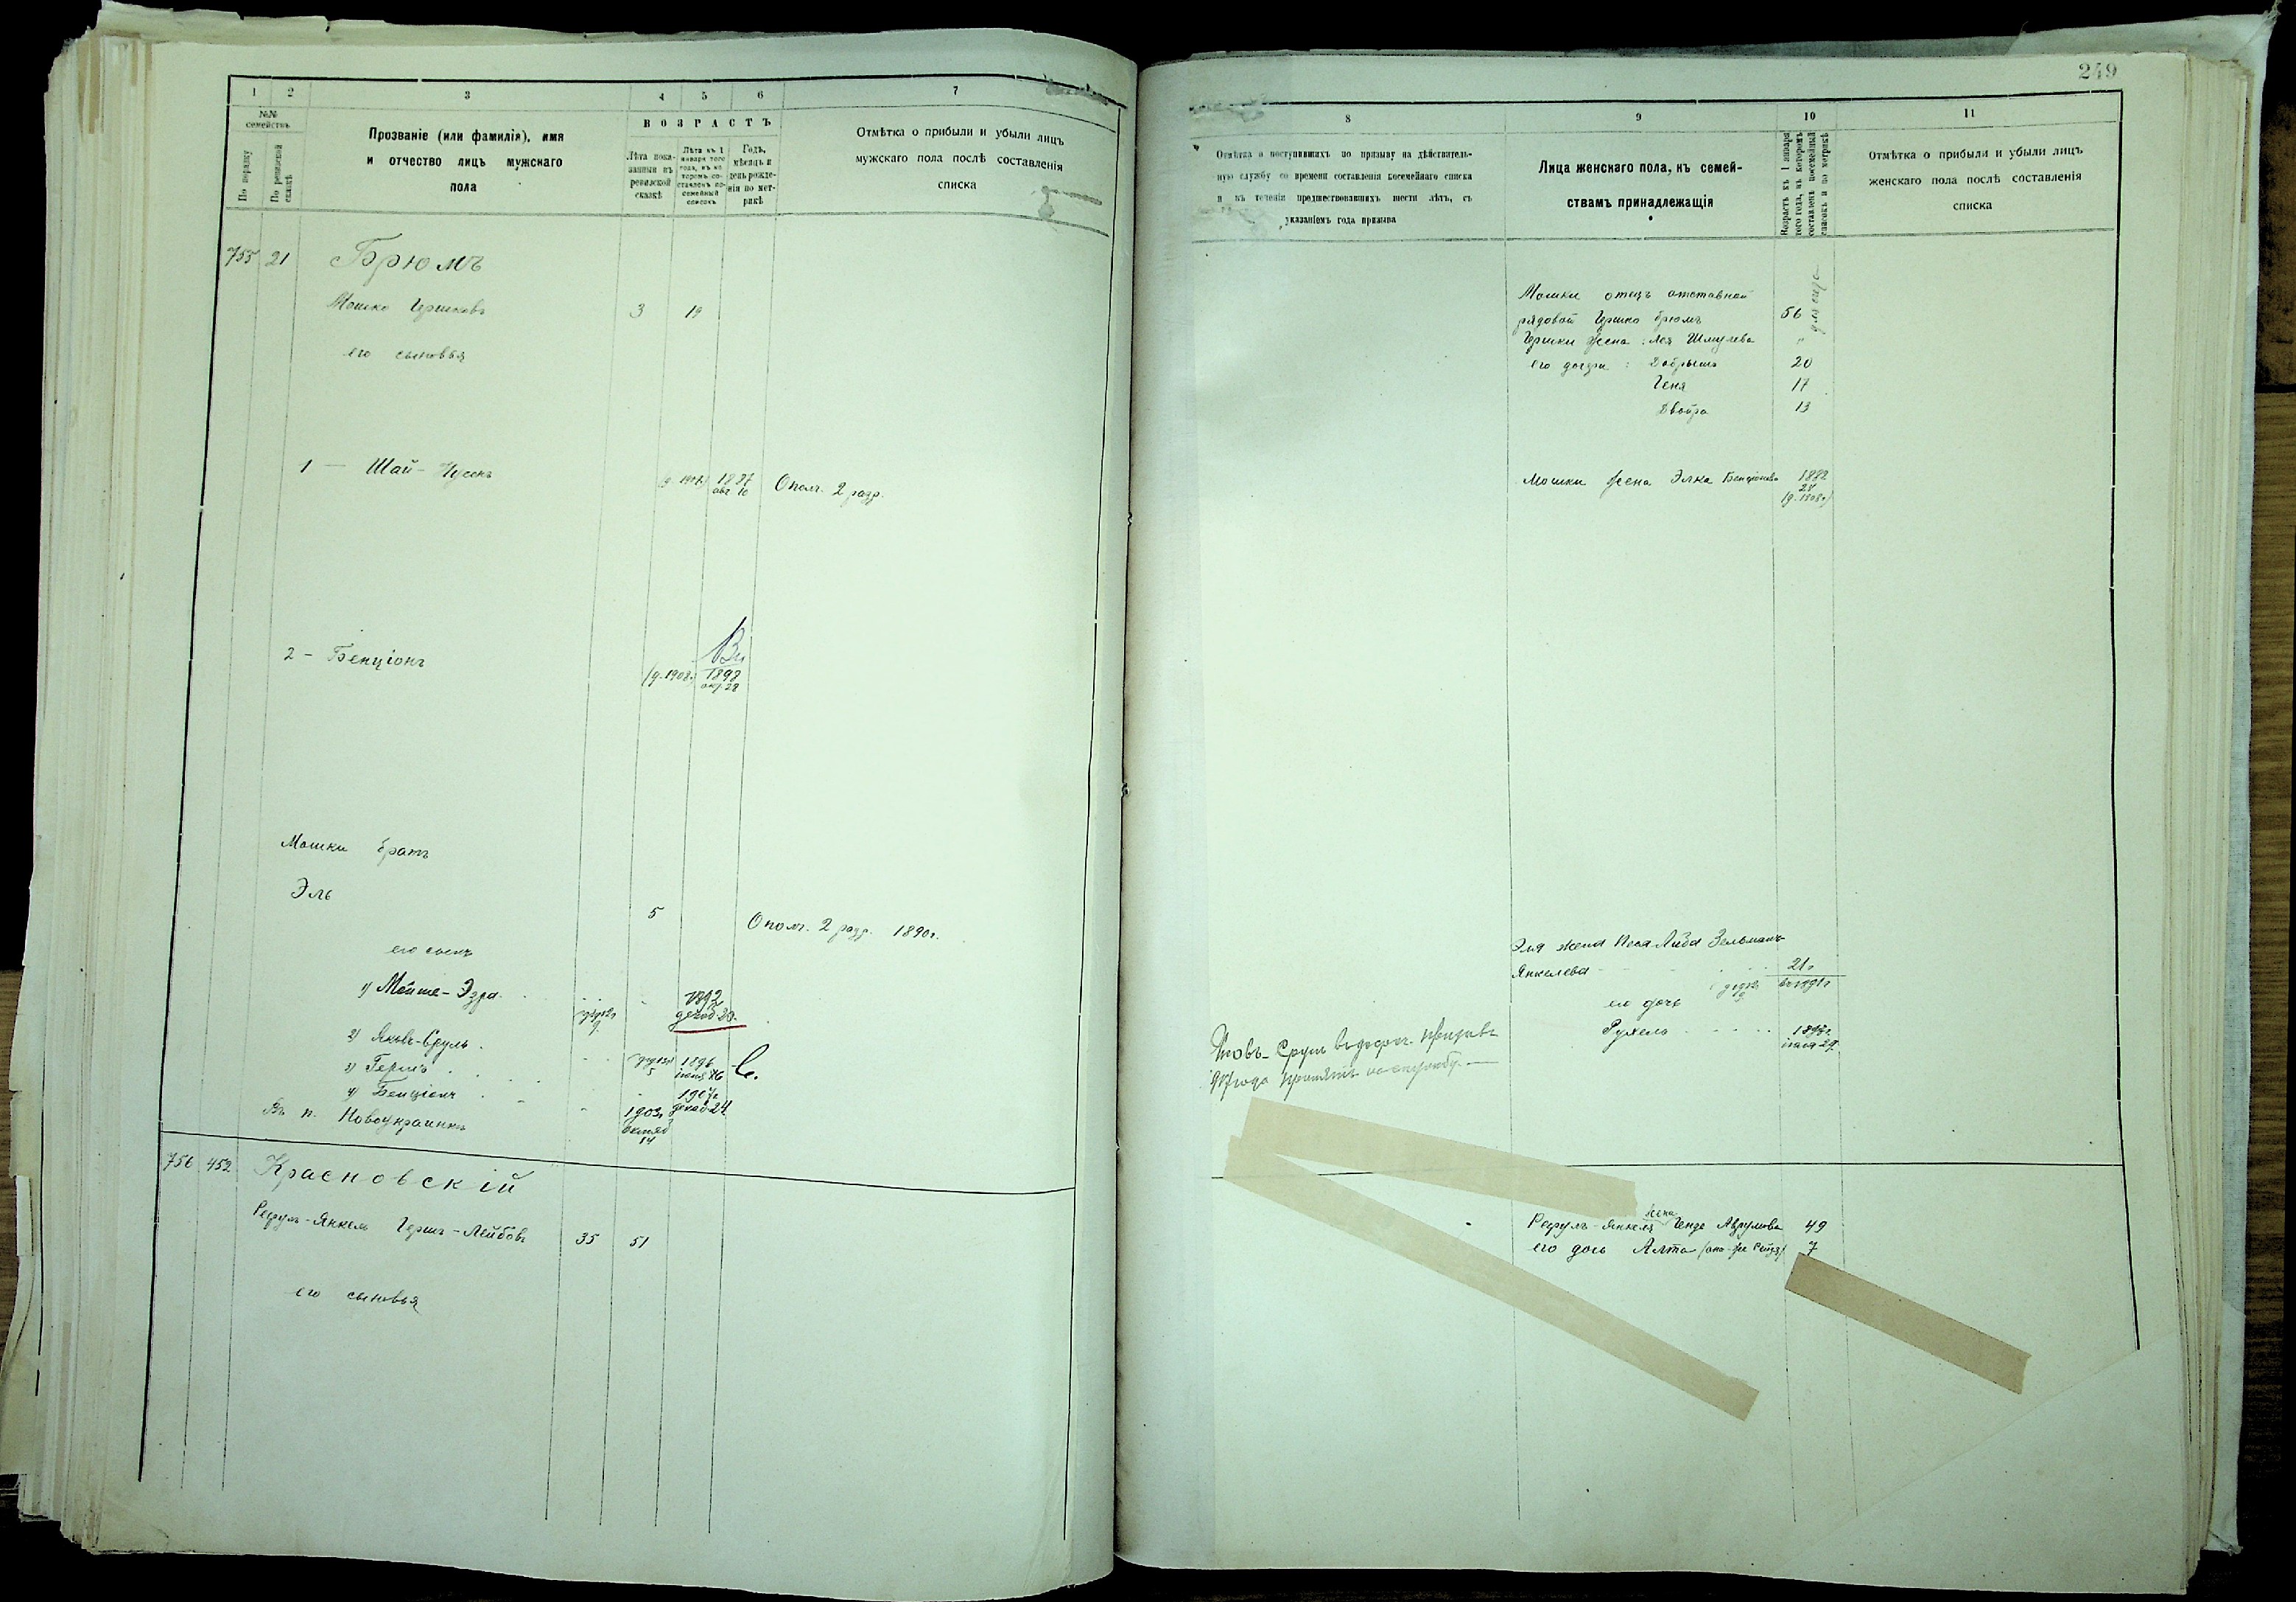 1 2 3 4 5 6 7
№№ семействъ
По порядку
По ревизской сказкѣ
Прозваніе (или фамилія), имя
и отчество лицъ мужскаго
пола
ВОЗРАСТЪ
Лѣта пока-
занныя въ
ревизской
сказкѣ
Лѣта къ 1
января того
года, въ ко-
торомъ со-
ставленъ по-
семейный
списокъ
Годъ,
мѣсяцъ и
день рожде-
нія по мет-
рикѣ
Отмѣтка о прибыли и убыли лицъ
мужскаго пола послѣ составленія
списка
755 21 Брюмъ
Мошко Гершковъ 3 19
его сыновья
1 — Шай- 1887
авг 10
Ополч. 2 разр.
2 — Бенціонъ (д. 1908) 1898
окт 28
Мошки братъ
Эль 5 Ополч. 2 разр. 1890г.
его сынъ
1) Мойше-Эзра 1892
декаб 30.
2) Яковъ-Сруль 1896
3) Гершъ 1907г
декаб 24
4) Бенціонъ 1903г
октяб
14
Въ п. Новоукраинкѣ
756 452 Красновскій
Рефулъ-Янкель Гершъ-Лейбовъ 35 51
его сыновья
249
8 9 10 11
Отмѣтка о поступившихъ по призыву на дѣйствитель-
ную службу со времени составленія посемейнаго списка
и въ теченія предшествовавшихъ шести лѣтъ, съ
указаніемъ года призыва
Лица женскаго пола, къ семей-
ствамъ принадлежащія
Возрастъ къ 1 января
того года, въ которомъ
составленъ посемейный
списокъ и по метрикѣ
Отмѣтка о прибыли и убыли лицъ
женскаго пола послѣ составленія
списка
Мошки отецъ отставной
рядовой Гершко Брюмъ 56
Гершки жена: Лея Шмулева "
его дочери: Добрыша 20
Геня 17
Двойра 13
Мошки жена Элка Бенціонова 1882
(д. 1908г)
Эля жена Песя-Либа Зельманъ-
Янкелева 21г
его дочь
Рухель 1893г
Яковъ-Сруль
принятъ на службу
Рефулъ-Янкеля жена Генде Аврумова 49
его дочь Алта 7